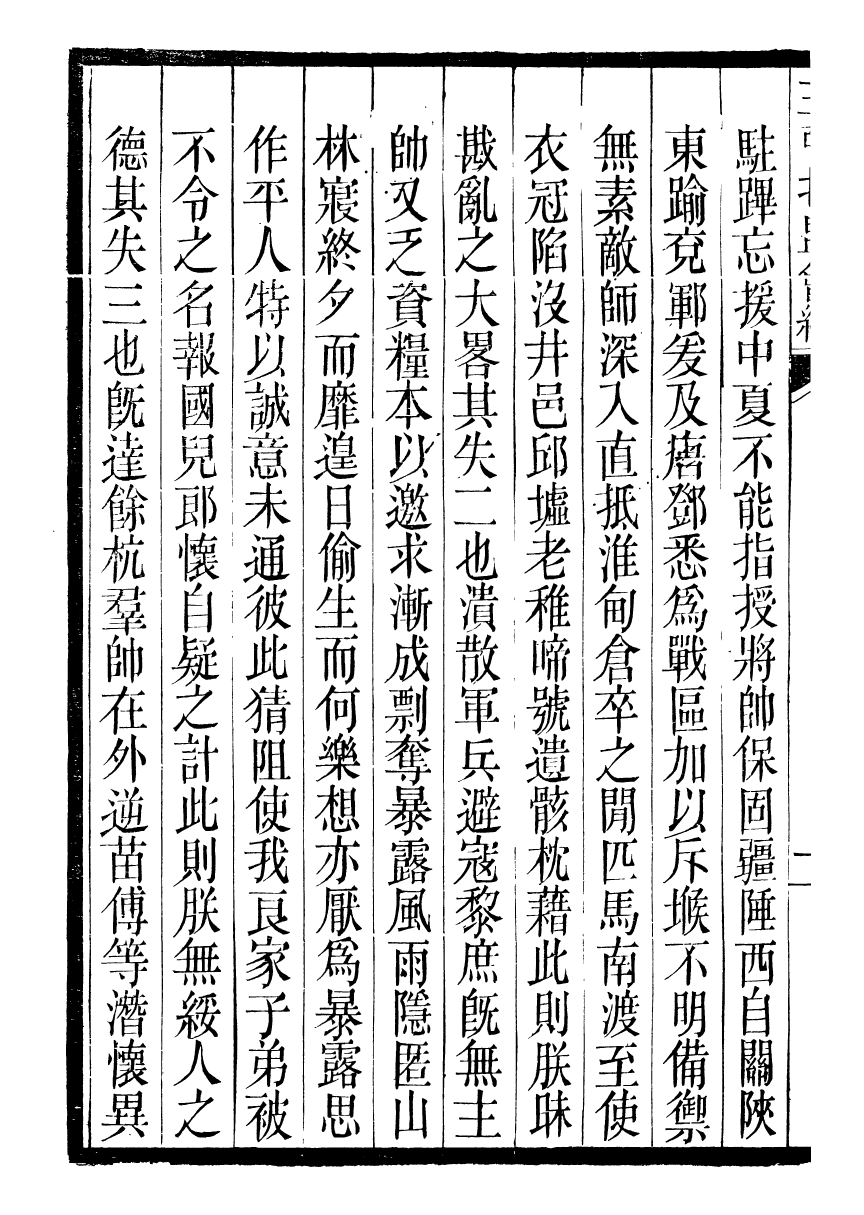 駐蹕忘援中夏不能指授將帥保固疆陲西自關陜
東踰兗鄆爰及唐鄧悉爲戰區加以斥堠不明備禦
無素敵師深入直抵淮甸倉卒之閒匹馬南渡至使
衣冠陷沒井邑邱墟老稚啼號遺骸枕藉此則朕昧
戡亂之大畧其失二也潰散軍兵避寇黎庶旣無主
帥又乏資糧本以邀求漸成剽奪暴露風雨隱匿山
林寢終夕而靡遑日偷生而何樂想亦厭爲暴露思
作平人特以誠意未通彼此猜阻使我良家子弟被
不令之名報國兒郎懷自疑之計此則朕無綏人之
德其失三也旣達餘杭羣帥在外逆苗傅等潛懷異